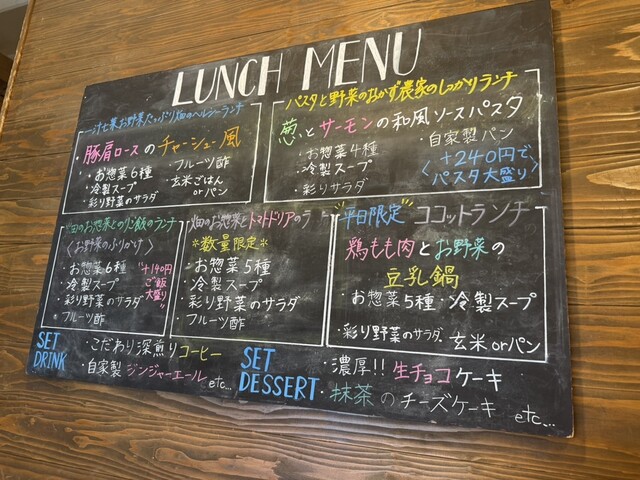 LUNCH MENU
一汁七菜お野菜たっぷり畑のヘルシーランチ
豚肩ロースのチャーシュー風
・お惣菜6種
・冷製スープ
・彩り野菜のサラダ
・フルーツ酢
・玄米ごはん
orパン
パスタと野菜のおかず農家のしっかりランチ
葱とサーモンの和風ソースパスタ
・お惣菜4種
・冷製スープ
・彩りサラダ
・自家製パン
〈+240円で
パスタ大盛り〉
畑のお惣菜とのり飯のランチ
〈お野菜のふりかけ〉
・お惣菜6種
・冷製スープ
・彩り野菜のサラダ
・フルーツ酢
"+190円
ご飯
大盛り"
畑のお惣菜とトマトドリアのラ
*数量限定*
・お惣菜5種
・冷製スープ
・彩り野菜のサラダ
・フルーツ酢
平日限定 ココットランチ
鶏もも肉とお野菜の
豆乳鍋
・お惣菜5種・冷製スープ
・彩り野菜のサラダ・玄米orパン
SET
DRINK
・こだわり深煎りコーヒー
・自家製ジンジャーエール etc...
SET
DESSERT
・濃厚!!生チョコケーキ
・抹茶のチーズケーキ etc...